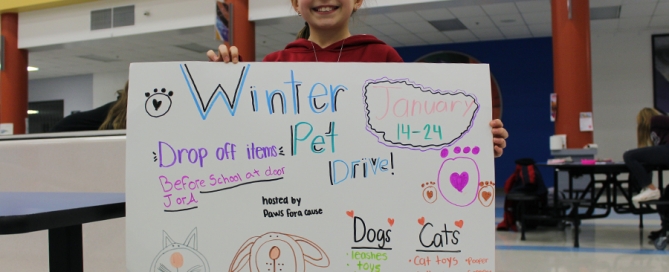 Winter
Pet
Drive!
January
14-24
Drop off items
Before School at door
J or A
hosted by
Paws for a cause
Dogs
• leashes
• toys
Cats
• cat toys